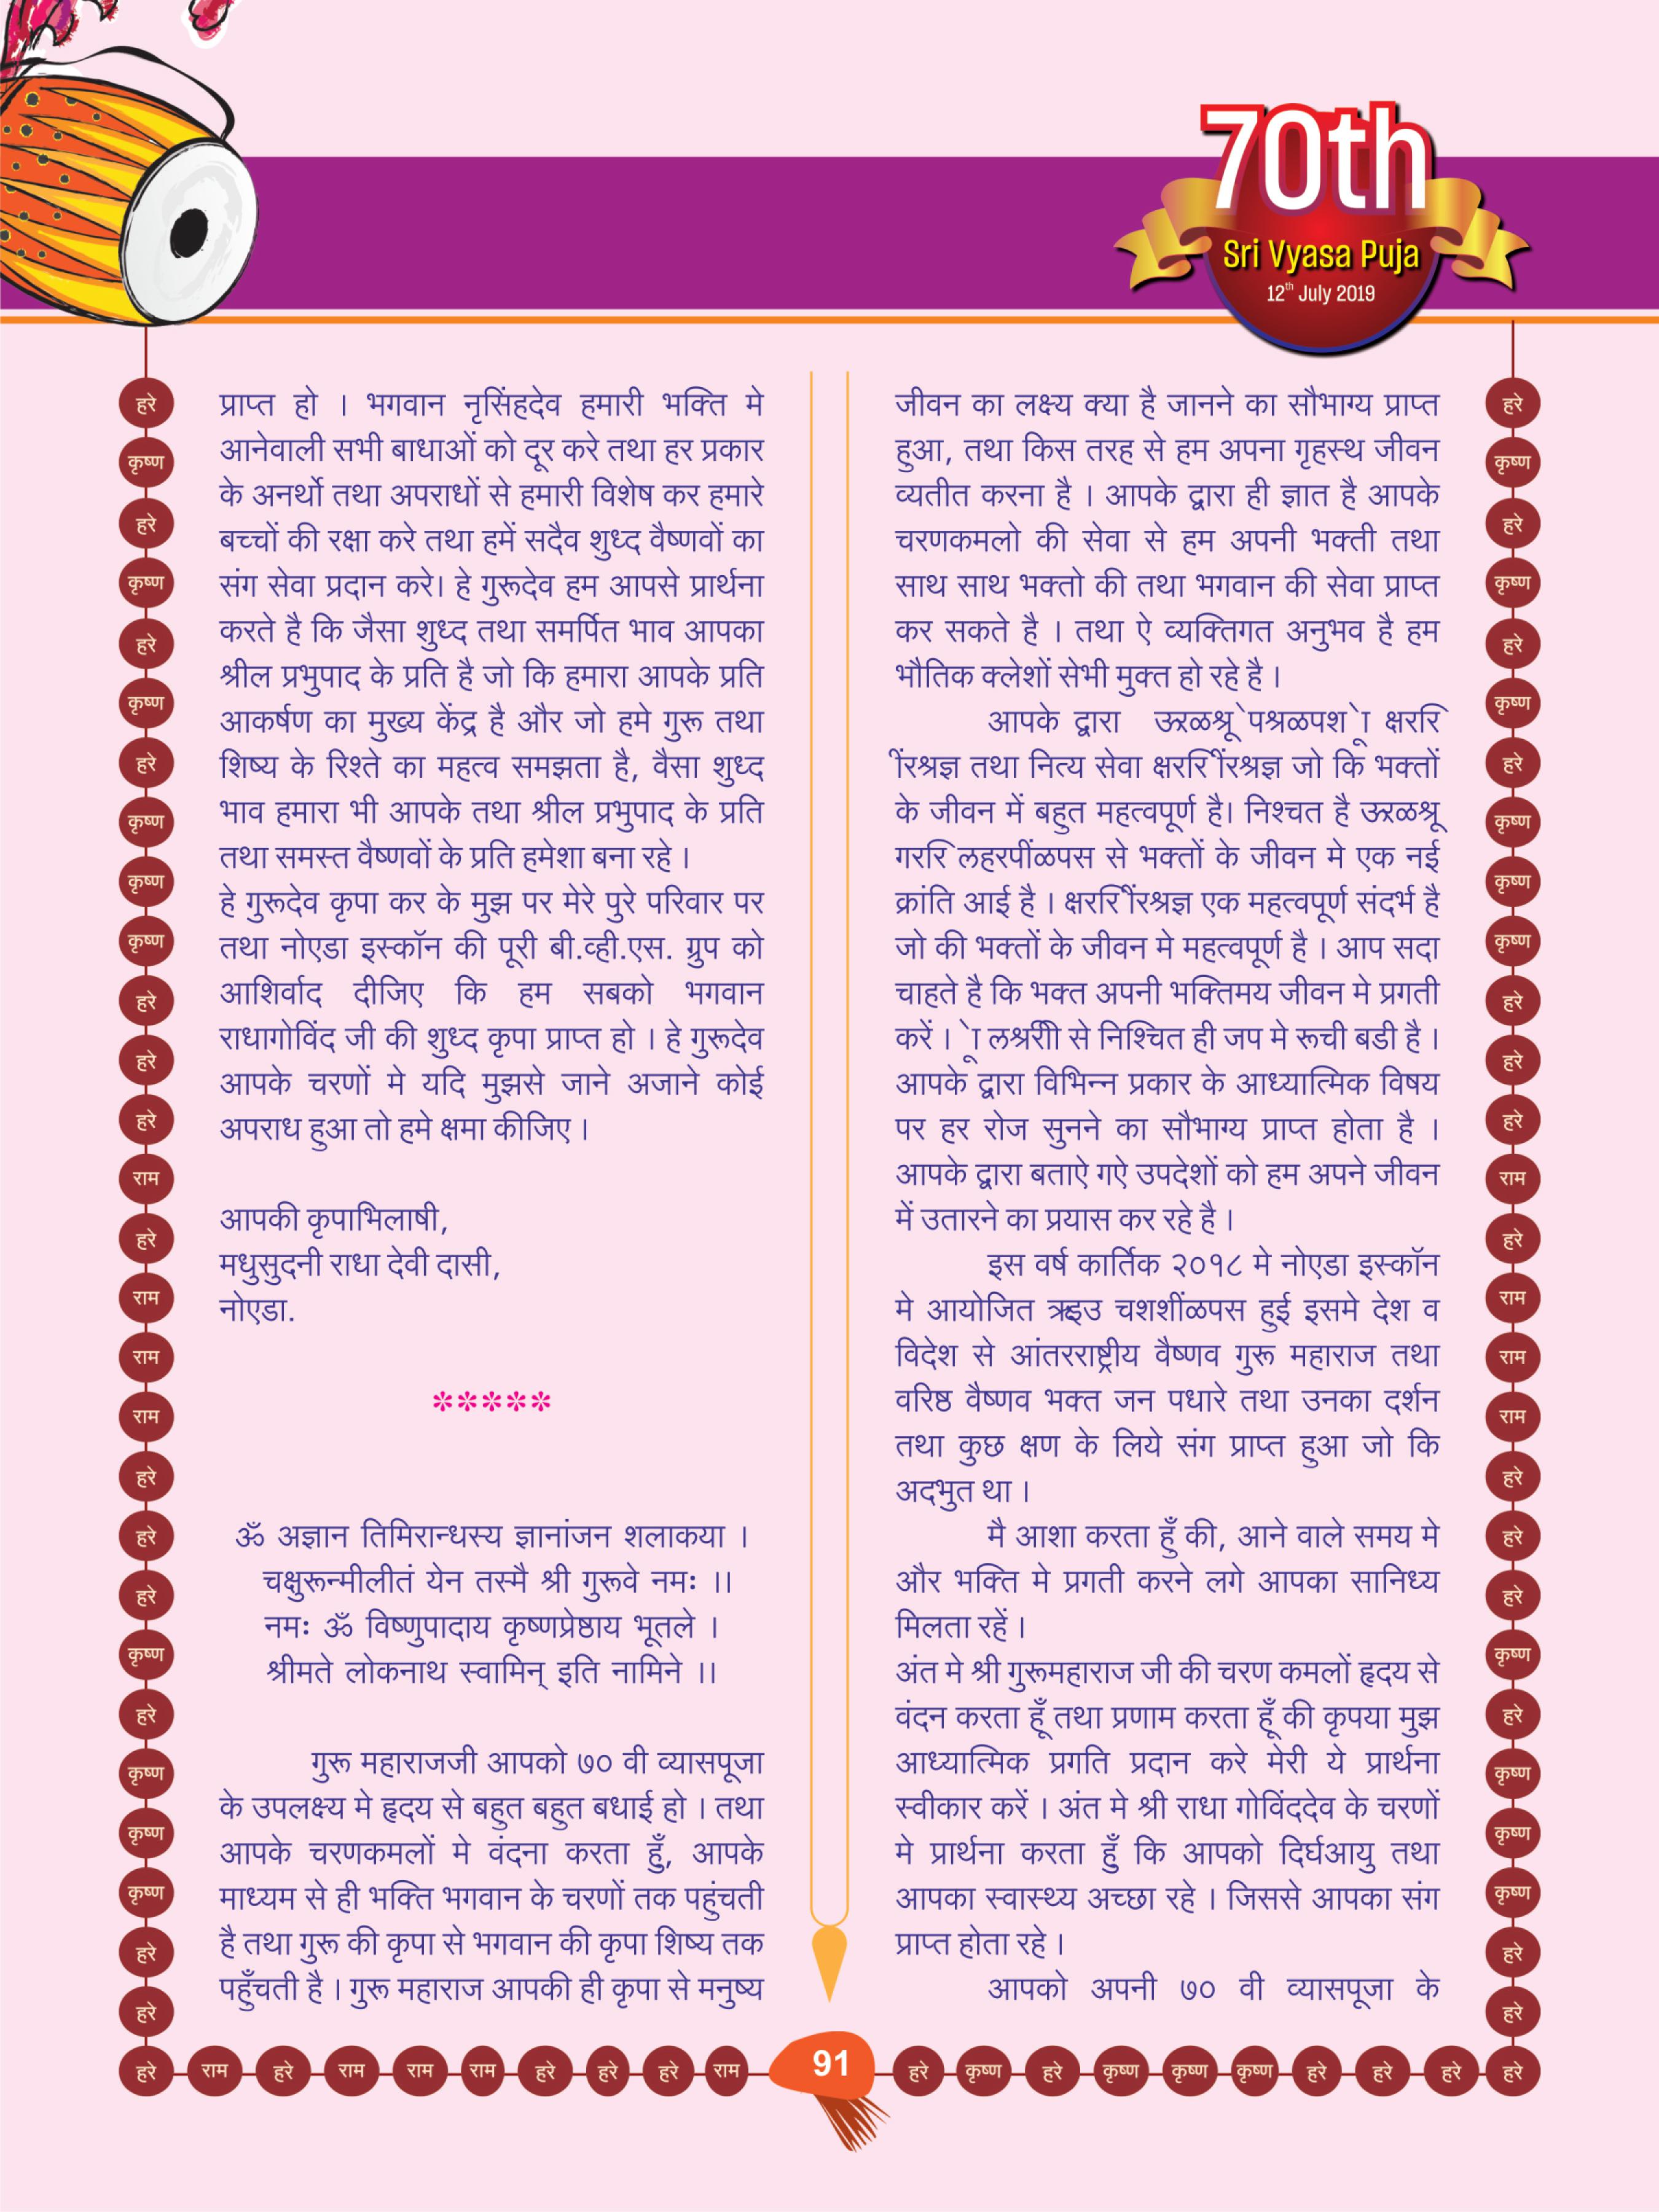 70th
Sri Vyasa Puja
12th July 2019
प्राप्त हो । भगवान नृसिंहदेव हमारी भक्ति मे
आनेवाली सभी बाधाओं को दूर करे तथा हर प्रकार
के अनर्थो तथा अपराधों से हमारी विशेष कर हमारे
बच्चों की रक्षा करे तथा हमें सदैव शुध्द वैष्णवों का
संग सेवा प्रदान करे। हे गुरूदेव हम आपसे प्रार्थना
करते है कि जैसा शुध्द तथा समर्पित भाव आपका
श्रील प्रभुपाद के प्रति है जो कि हमारा आपके प्रति
आकर्षण का मुख्य केंद्र है और जो हमे गुरू तथा
शिष्य के रिश्ते का महत्व समझता है, वैसा शुध्द
भाव हमारा भी आपके तथा श्रील प्रभुपाद के प्रति
तथा समस्त वैष्णवों के प्रति हमेशा बना रहे ।
हे गुरूदेव कृपा कर के मुझ पर मेरे पुरे परिवार पर
तथा नोएडा इस्कॉन की पूरी बी.व्ही.एस. ग्रुप को
आशिर्वाद दीजिए कि हम सबको भगवान
राधागोविंद जी की शुध्द कृपा प्राप्त हो । हे गुरूदेव
आपके चरणों मे यदि मुझसे जाने अजाने कोई
अपराध हुआ तो हमे क्षमा कीजिए ।
आपकी कृपाभिलाषी,
मधुसुदनी राधा देवी दासी,
नोएडा.
*****
ॐ अज्ञान तिमिरान्धस्य ज्ञानांजन शलाकया ।
चक्षुरून्मीलीतं येन तस्मै श्री गुरूवे नमः ।।
नमः ॐ विष्णुपादाय कृष्णप्रेष्ठाय भूतले ।
श्रीमते लोकनाथ स्वामिन् इति नामिने ।।
गुरू महाराजजी आपको ७० वी व्यासपूजा
के उपलक्ष्य मे हृदय से बहुत बहुत बधाई हो । तथा
आपके चरणकमलों मे वंदना करता हुँ, आपके
माध्यम से ही भक्ति भगवान के चरणों तक पहुंचती
है तथा गुरू की कृपा से भगवान की कृपा शिष्य तक
पहुँचती है । गुरू महाराज आपकी ही कृपा से मनुष्य
जीवन का लक्ष्य क्या है जानने का सौभाग्य प्राप्त
हुआ, तथा किस तरह से हम अपना गृहस्थ जीवन
व्यतीत करना है । आपके द्वारा ही ज्ञात है आपके
चरणकमलो की सेवा से हम अपनी भक्ती तथा
साथ साथ भक्तो की तथा भगवान की सेवा प्राप्त
कर सकते है । तथा ऐ व्यक्तिगत अनुभव है हम
भौतिक क्लेशों सेभी मुक्त हो रहे है ।
आपके द्वारा
तथा नित्य सेवा जो कि भक्तों
के जीवन में बहुत महत्वपूर्ण है। निश्चत है
से भक्तों के जीवन मे एक नई
क्रांति आई है । एक महत्वपूर्ण संदर्भ है
जो की भक्तों के जीवन मे महत्वपूर्ण है । आप सदा
चाहते है कि भक्त अपनी भक्तिमय जीवन मे प्रगती
करें । से निश्चित ही जप मे रूची बडी है ।
आपके द्वारा विभिन्न प्रकार के आध्यात्मिक विषय
पर हर रोज सुनने का सौभाग्य प्राप्त होता है ।
आपके द्वारा बताऐ गऐ उपदेशों को हम अपने जीवन
में उतारने का प्रयास कर रहे है ।
इस वर्ष कार्तिक २०१८ मे नोएडा इस्कॉन
मे आयोजित चशशींळपस हुई इसमे देश व
विदेश से आंतरराष्ट्रीय वैष्णव गुरू महाराज तथा
वरिष्ठ वैष्णव भक्त जन पधारे तथा उनका दर्शन
तथा कुछ क्षण के लिये संग प्राप्त हुआ जो कि
अदभुत था ।
मै आशा करता हुँ की, आने वाले समय मे
और भक्ति मे प्रगती करने लगे आपका सानिध्य
मिलता रहें ।
अंत मे श्री गुरूमहाराज जी की चरण कमलों हृदय से
वंदन करता हूँ तथा प्रणाम करता हूँ की कृपया मुझ
आध्यात्मिक प्रगति प्रदान करे मेरी ये प्रार्थना
स्वीकार करें । अंत मे श्री राधा गोविंददेव के चरणों
मे प्रार्थना करता हुँ कि आपको दिर्घआयु तथा
आपका स्वास्थ्य अच्छा रहे । जिससे आपका संग
प्राप्त होता रहे ।
आपको अपनी ७० वी व्यासपूजा के
हरे राम हरे राम राम राम हरे हरे हरे राम 91 हरे कृष्ण हरे कृष्ण कृष्ण कृष्ण हरे हरे हरे हरे